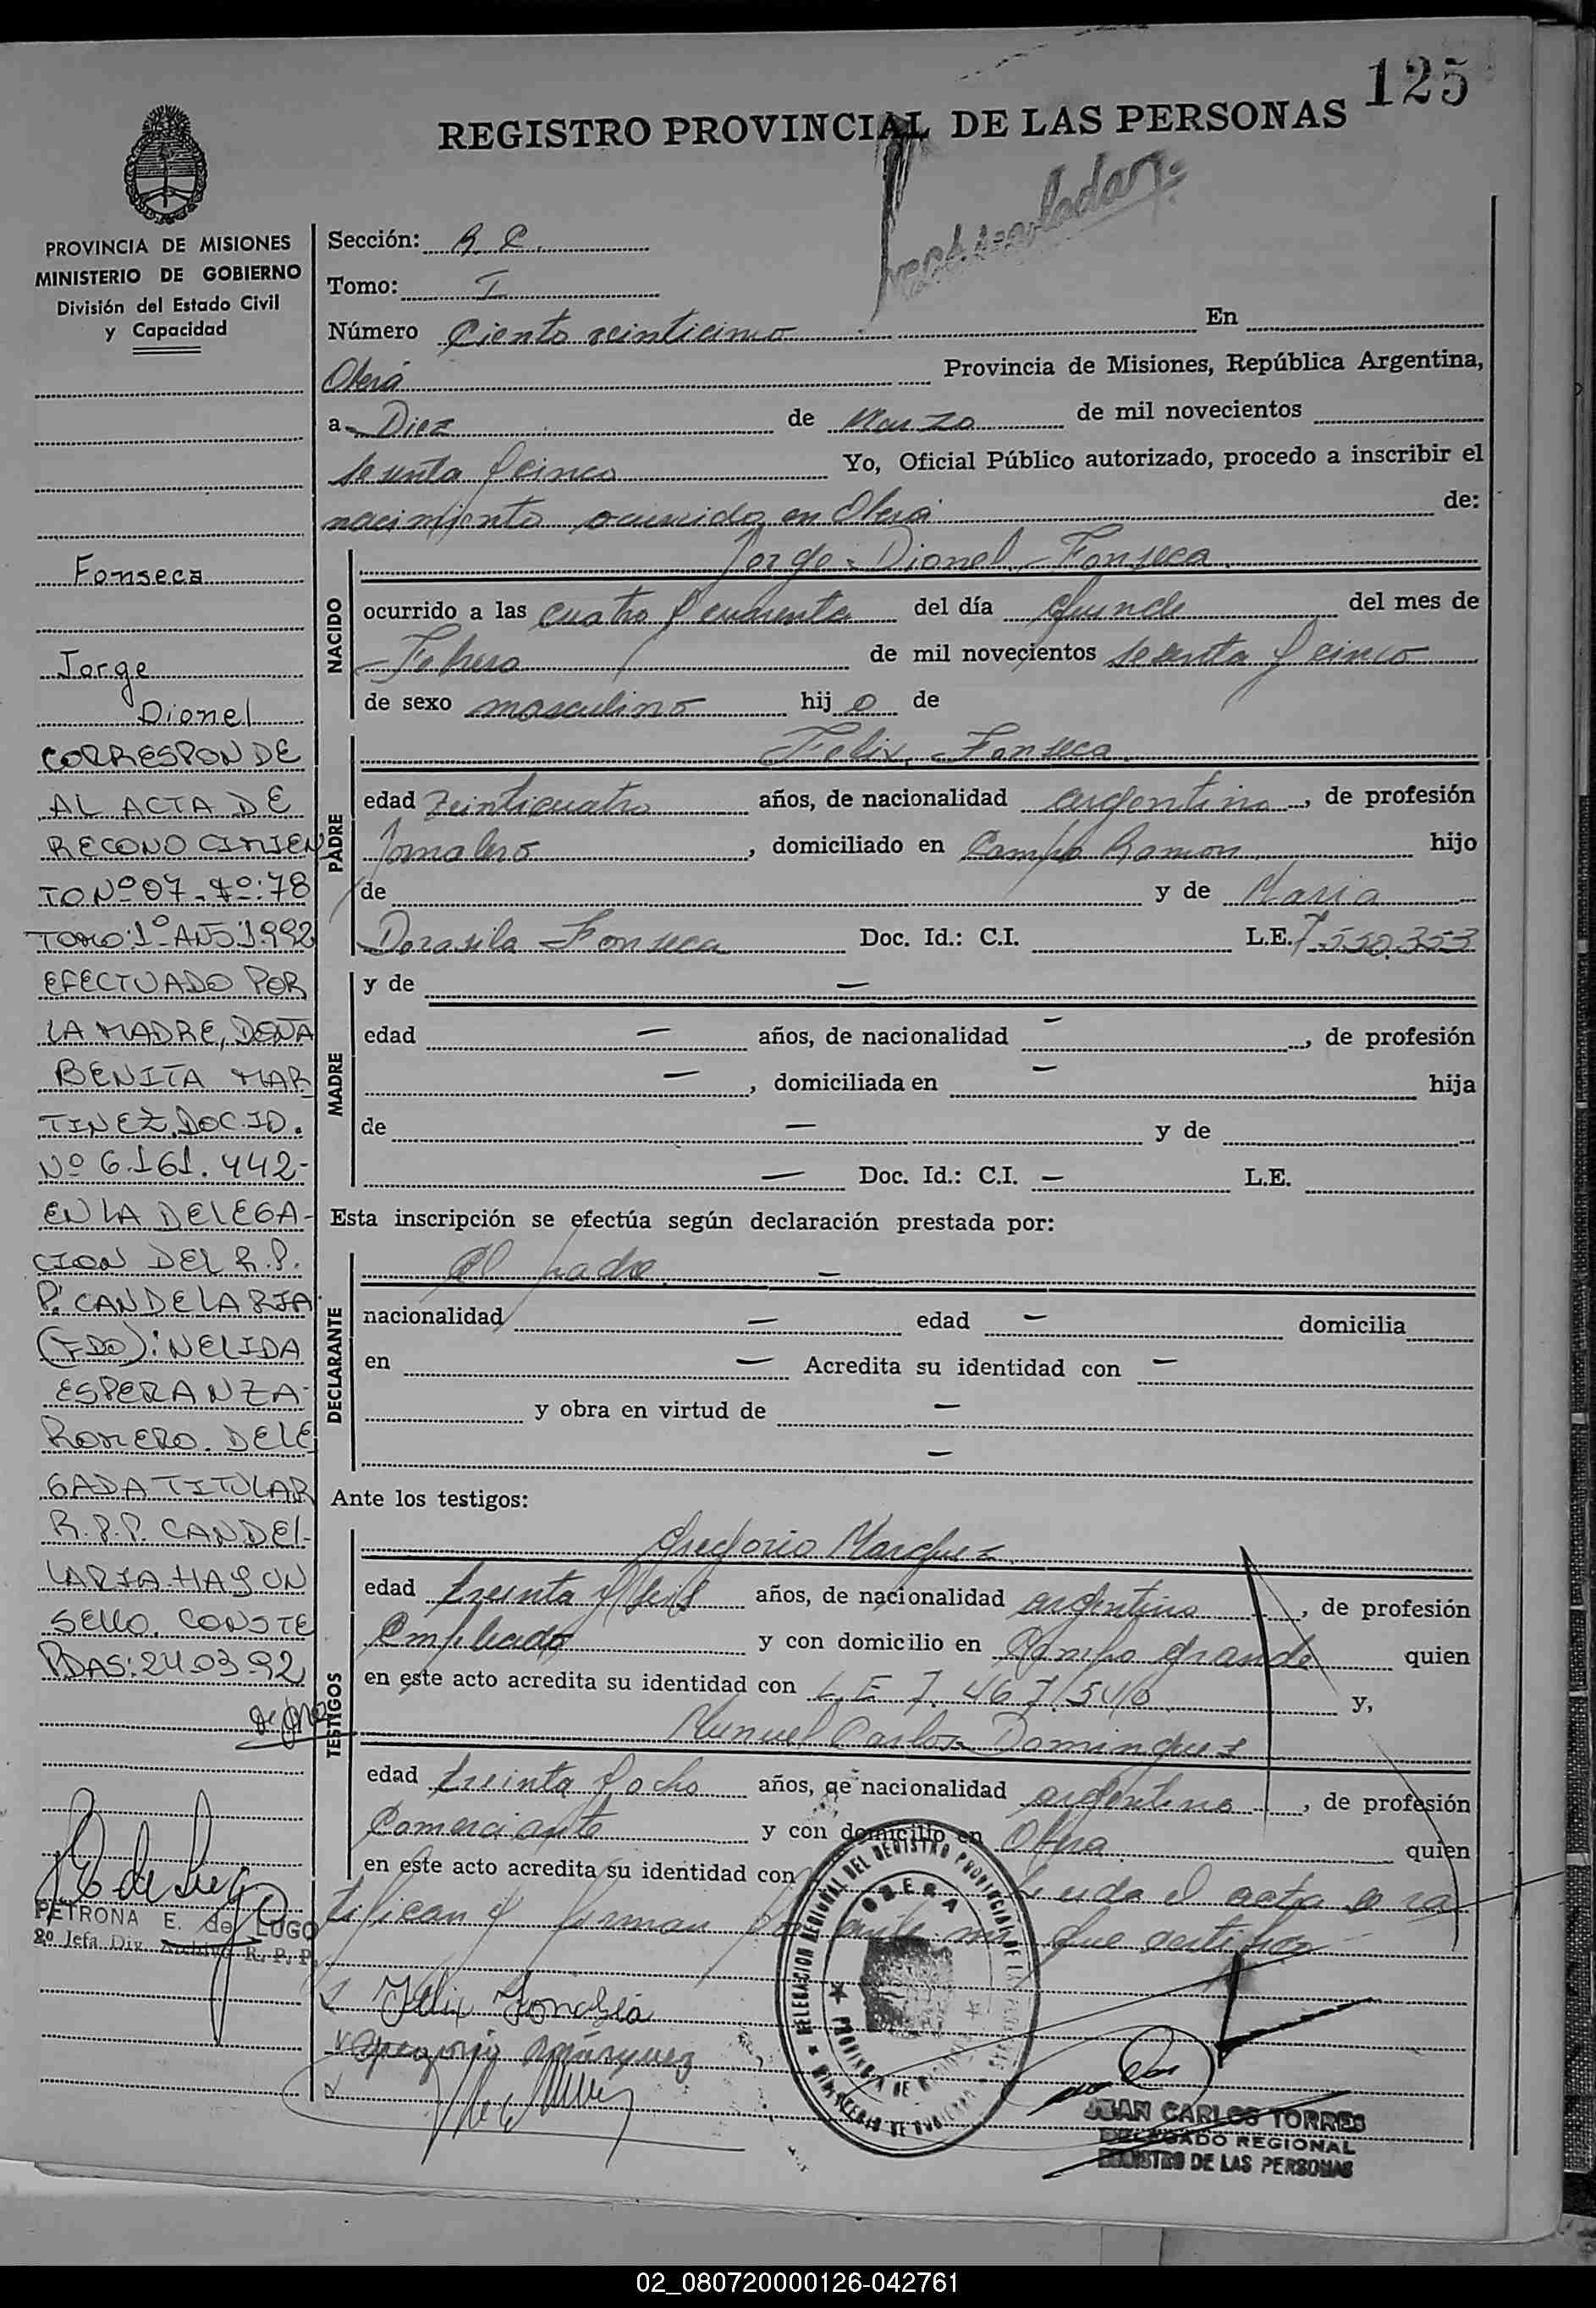 125
REGISTRO PROVINCIAL DE LAS PERSONAS
PROVINCIA DE MISIONES
MINISTERIO DE GOBIERNO
División del Estado Civil
y Capacidad
Fonseca
Jorge
Dionel
CORRESPONDE
AL ACTA DE
RECONOCIMIEN
TO Nº 07-Fº:78
TOMO:1º-AÑO:1992
EFECTUADO POR
LA MADRE, DOÑA
BENITA MAR
TINEZ.DOC.ID.
Nº 6.161.442-
EN LA DELEGA-
CION DEL R.P.
P. CANDELARIA
(FDO): NELIDA
ESPERANZA
ROMERO. DELE
GADA TITULAR
R.P.P. CANDE-
LARIA-HAY UN
SELLO. CONSTE
PDAS: 24.03.92
PETRONA E. de LUGO
2º Jefa Div. Archivo R. P. P.
Sección: R C.
Tomo: I
Número Ciento veinticinco En
Oberá Provincia de Misiones, República Argentina,
a Diez de Marzo de mil novecientos
sesenta y cinco Yo, Oficial Público autorizado, procedo a inscribir el
nacimiento ocurrido en Oberá de:
NACIDO
Jorge Dionel Fonseca
ocurrido a las cuatro y cuarenta del día Quince del mes de
Febrero de mil novecientos sesenta y cinco
de sexo masculino hij o de
PADRE
Felix Fonseca
edad veinticuatro años, de nacionalidad argentino, de profesión
Jornalero, domiciliado en Campo Ramon hijo
de y de Maria
Dorasila Fonseca Doc. Id.: C.I. L.E. 7.550.353
MADRE
y de —
edad — años, de nacionalidad —, de profesión
—, domiciliada en — hija
de — y de
— Doc. Id.: C.I. — L.E.
Esta inscripción se efectúa según declaración prestada por:
DECLARANTE
El padre. —
nacionalidad — edad — domicilia
en — Acredita su identidad con —
y obra en virtud de —
—
Ante los testigos:
TESTIGOS
Gregorio Marquez
edad treinta y seis años, de nacionalidad argentino, de profesión
Empleado y con domicilio en Campo grande quien
en este acto acredita su identidad con L.E 7.467.540 y,
Manuel Carlos Dominguez
edad treinta y ocho años, de nacionalidad argentino, de profesión
Comerciante y con domicilio en Obera quien
en este acto acredita su identidad con Leida el acta la ra
tifican y firman por ante mi que certifico
Felix Fonseca
Gregorio Márquez
DELEGACION REGIONAL DEL REGISTRO PROVINCIAL DE LAS PERSONAS
OBERA
PROVINCIA DE MISIONES
MINISTERIO DE GOBIERNO
JUAN CARLOS TORRES
DELEGADO REGIONAL
REGISTRO DE LAS PERSONAS
02_080720000126-042761